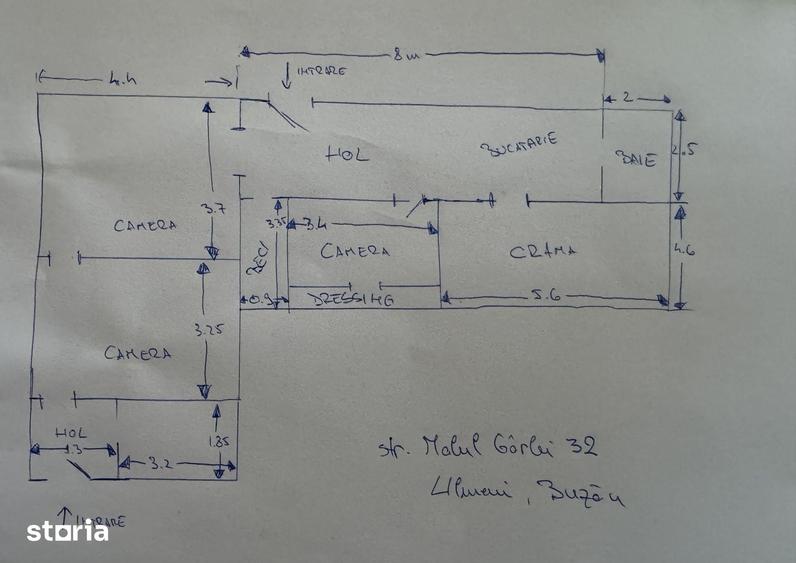 8m
4.4
INTRARE
2
HOL
BUCATARIE
BAIE
2.5
3.7
CAMERA
3.35
3.4
BECI
CAMERA
CRAMA
4.6
0.9
DRESSING
5.6
3.25
CAMERA
HOL
1.3
3.2
1.85
str. Malul Gârlei 32
Ulmeni, Buzău
INTRARE
storia